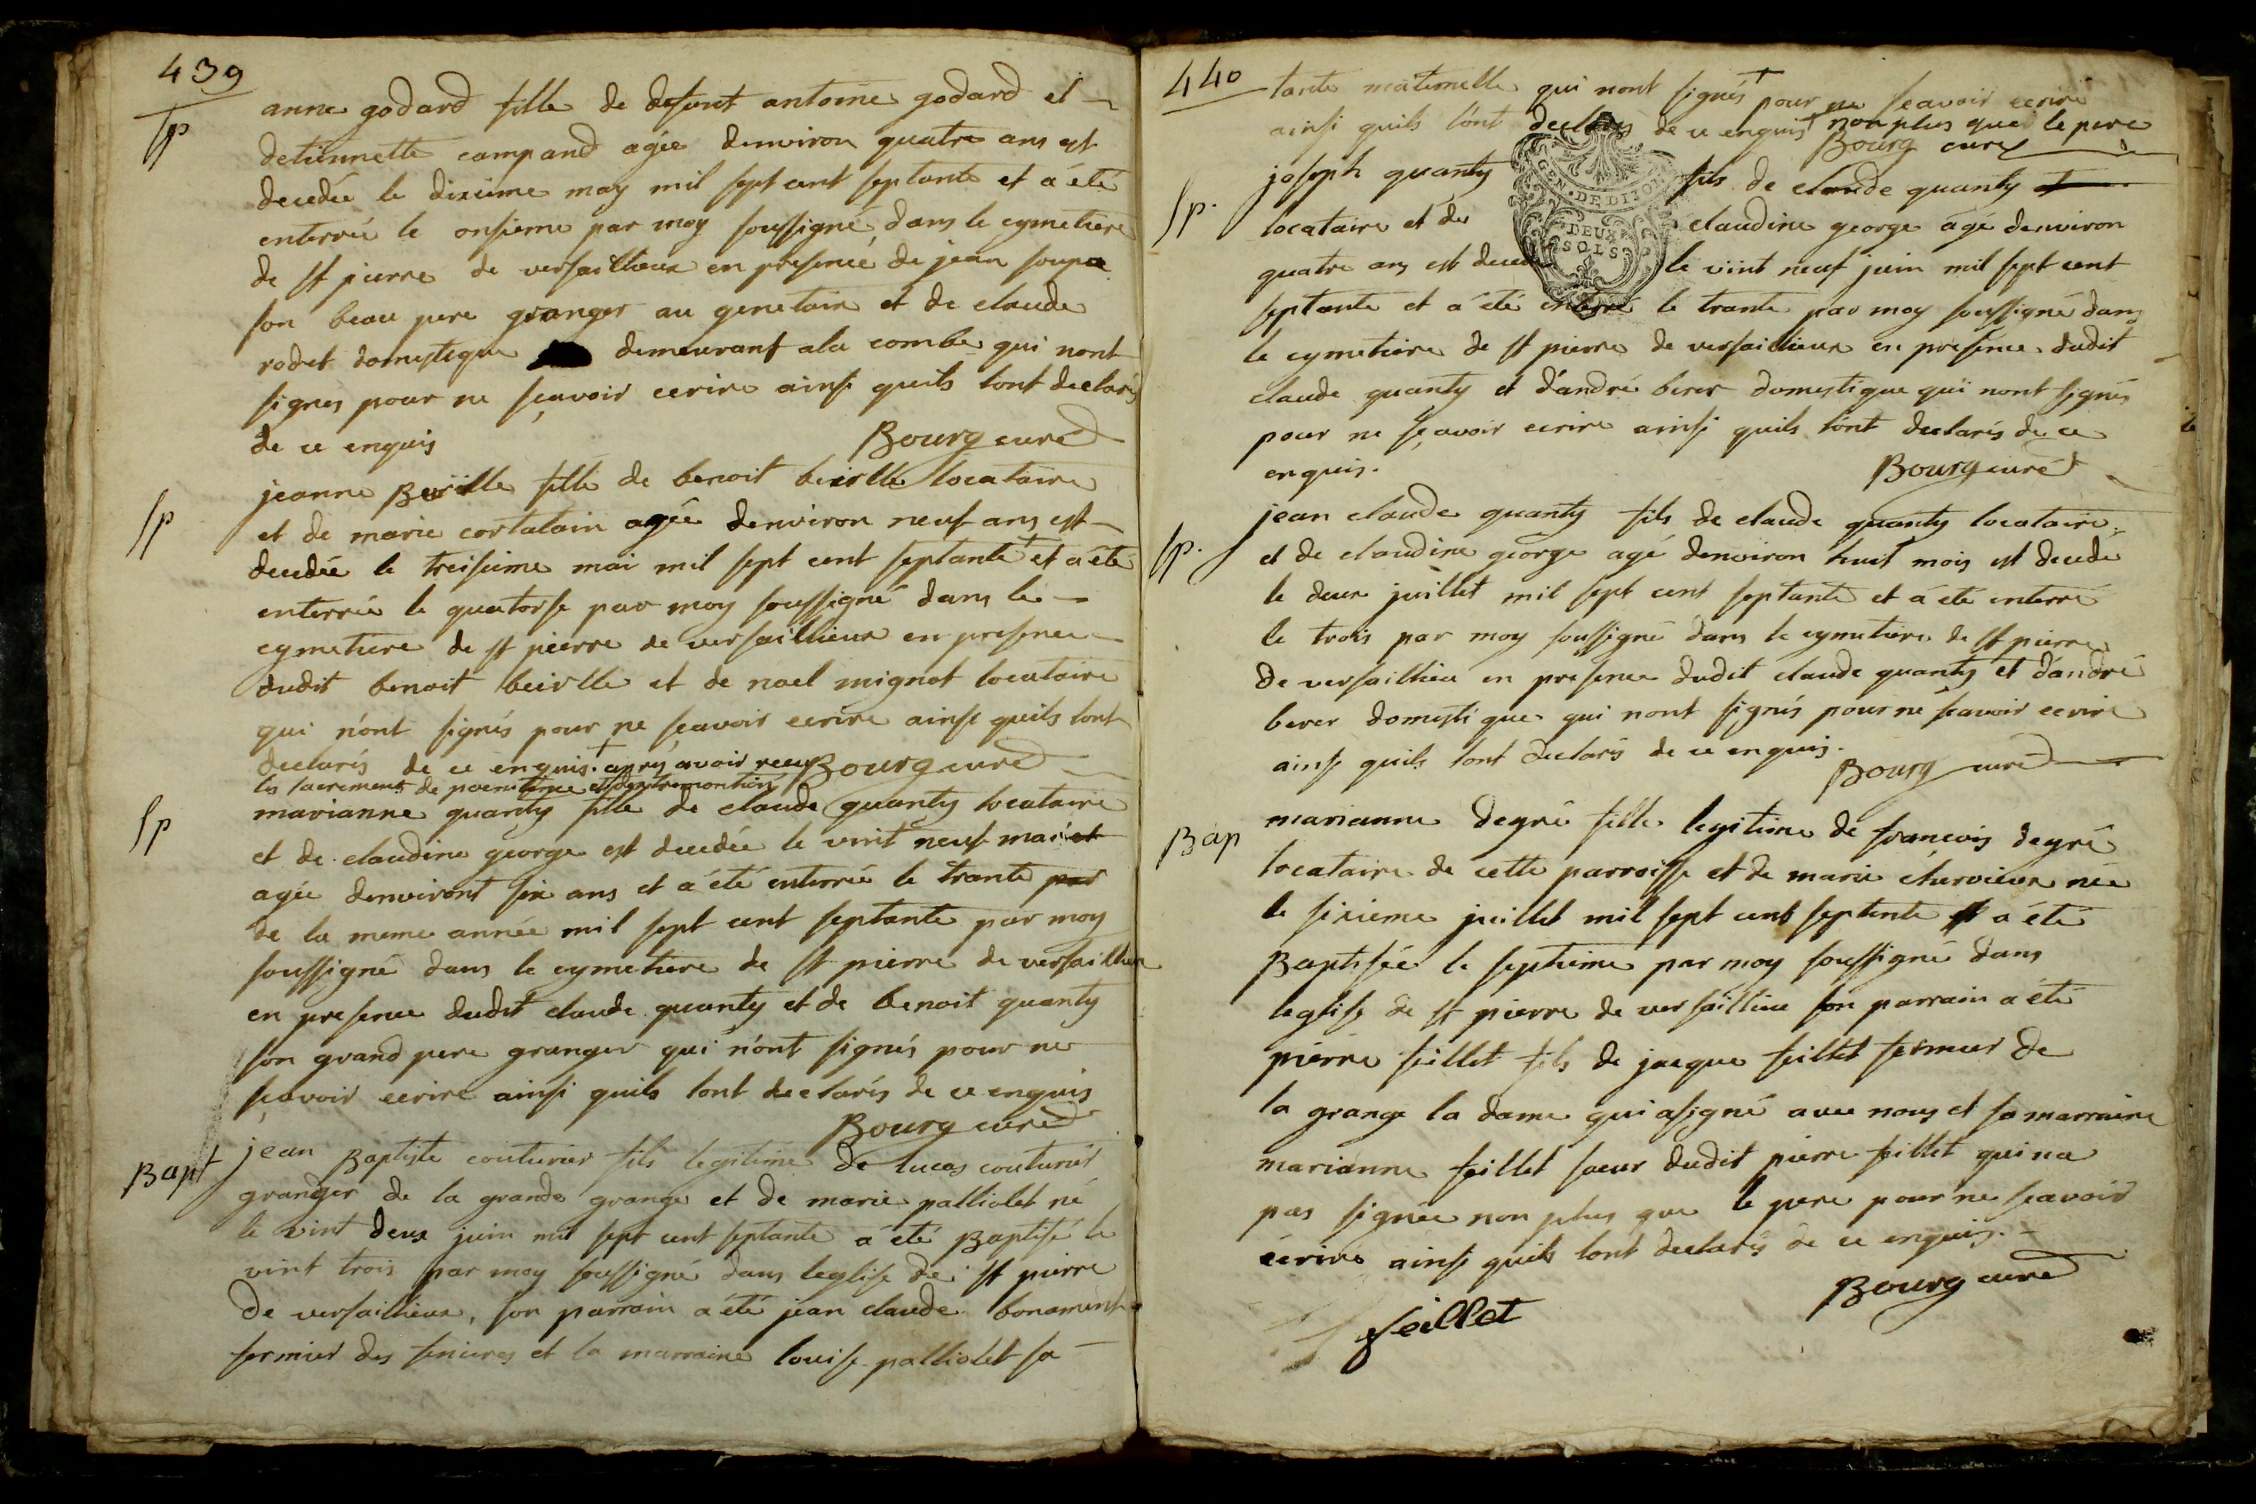 439
Sp
anne godard fille de defunt antoine godard et
detiennette campand agée denviron quatre ans est
decedée le dixieme may mil sept cent septante et a été
enterrée le onsieme par moy soussigné, dans le cymetiere
de st pierre de versaillieux en presence de jean soupe
son beau pere granger au genetaix et de claude
rodet domestique demeurant a la combe qui nont
signés pour ne sçavoir ecrire ainsi quils lont declarés
de ce enquis Bourg curé
Sp
jeanne Beirlle fille de benoit beirlle locataire
et de marie cortalain agée denviron neuf ans est
decedée le treisieme mai mil sept cent septante + et a été
enterrée le quatorse par moy soussigné dans le
cymetiere de st pierre de versaillieux en presence
dudit benoit beirlle et de noel mignot locataire
qui n'ont signés pour ne sçavoir ecrire ainsi quils lont
declarés de ce enquis. + aprés avoir reçu Bourg curé
les sacrements de poenitence et dextremontion
Sp
marianne quanty fille de claude quanty locataire
et de claudine george est decedée le vint neuf mai et
agée denviront six ans et a été enterrée le trante par
de la meme année mil sept cent septante par moy
soussigné dans le cymetiere de st pierre de versaillieux
en presence dudit claude quanty et de benoit quanty
son grand pere granger qui n'ont signés pour ne
sçavoir ecrire ainsi quils lont declarés de ce enquis
Bourg curé
Bapt
jean Baptiste couturier fils legitime de lucas couturier
granger de la grande grange et de marie palliolet né
le vint deux juin mil sept cent septante a été Baptisé le
vint trois par moy soussigné dans leglise de st pierre
de versaillieux, son parrain a été jean claude bonament
fermier des sinieres et la marraine louise palliolet sa
440
tante maternelle qui nont signés + pour ne sçavoir ecrire
ainsi quils lont declarés de ce enquis + non plus que le pere
Bourg curé
Sp.
joseph quanty fils de claude quanty et
locataire et de claudine george agé denviron
quatre ans est decedé le vint neuf juin mil sept cent
septante et a été enterré le trante par moy soussigné dans
le cymetiere de st pierre de versaillieux en presence dudit
claude quanty et d'andré berer domestique qui nont signés
pour ne sçavoir ecrire ainsi quils lont declarés de ce
enquis. Bourg curé
GEN. DE DIJON
DEUX
SOLS
Sp.
jean claude quanty fils de claude quanty locataire
et de claudine george agé denviron huit mois est decedé
le deux juillet mil sept cent septante et a été enterré
le trois par moy soussigné dans le cymetiere de st pierre
de versaillieu en presence dudit claude quanty et d'andré
berer domestique qui nont signés pour ne sçavoir ecrire
ainsi quils lont declarés de ce enquis.
Bourg curé
Bap
marianne degré fille legitime de françois degré
locataire de cette parroisse et de marie chervieux née
le sixieme juillet mil sept cent septente et a été
Baptisée le septieme par moy soussigné dans
leglise de st pierre de versaillieu son parrain a été
pierre feillet fils de jacque feillet fermier de
la grange la dame qui a signé avec nous et sa marraine
marianne feillet soeur dudit pierre feillet qui na
pas signée non plus que le pere pour ne sçavoir
écrire ainsi quils lont declarés de ce enquis.
Bourg curé
feillet